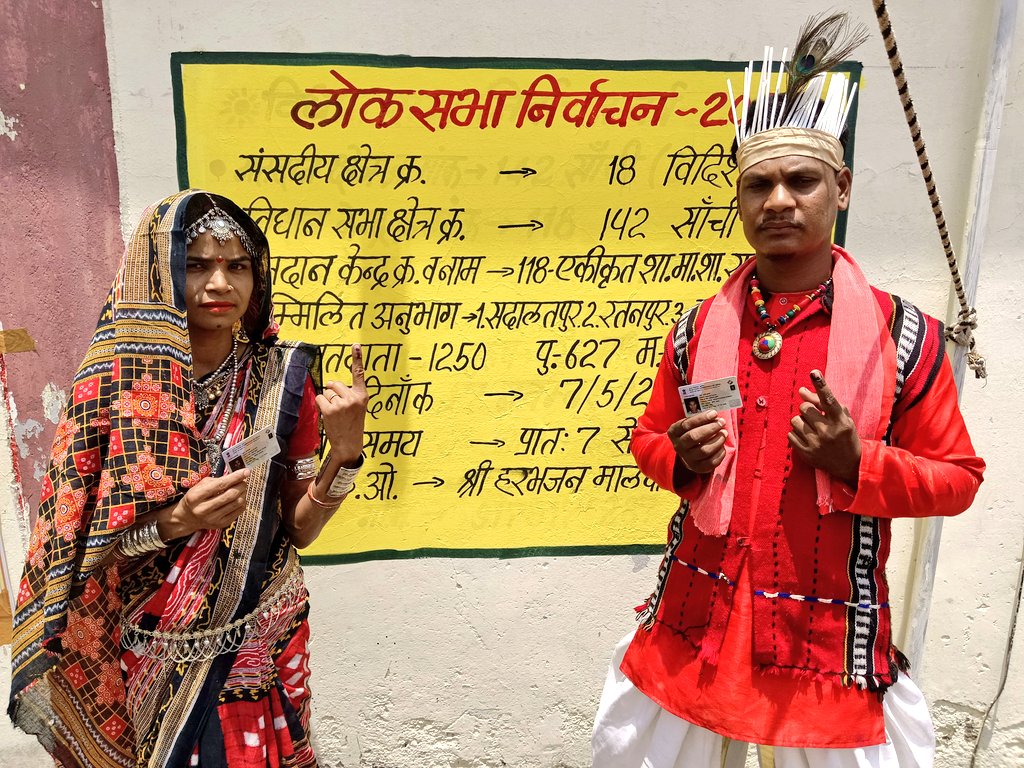 लोक सभा निर्वाचन - 20
संसदीय क्षेत्र क्र. → 18 विदिश
विधान सभा क्षेत्र क्र. → 142 साँची
मतदान केन्द्र क्र. व नाम → 118-एकीकृत शा.मा.शा.
सम्मिलित अनुभाग → 1.सदालतपुर.2.रतनपुर.3.
मतदाता - 1250 पु.-627 म.
दिनाँक → 7/5/2
समय → प्रातः 7 से
.ओ. → श्री हरभजन माल